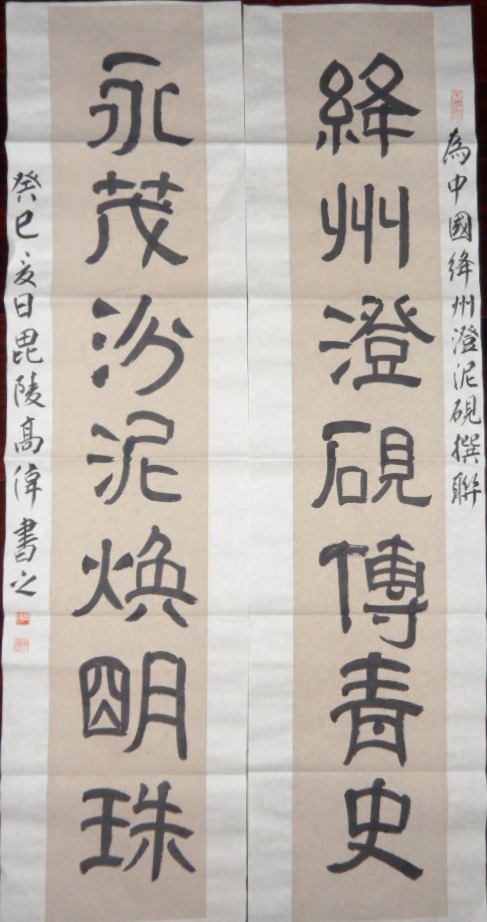 為中國絳州澄泥硯撰聯
絳州澄硯傳青史
永茂汾泥煥朙珠
癸巳夏日毘陵高偉書之